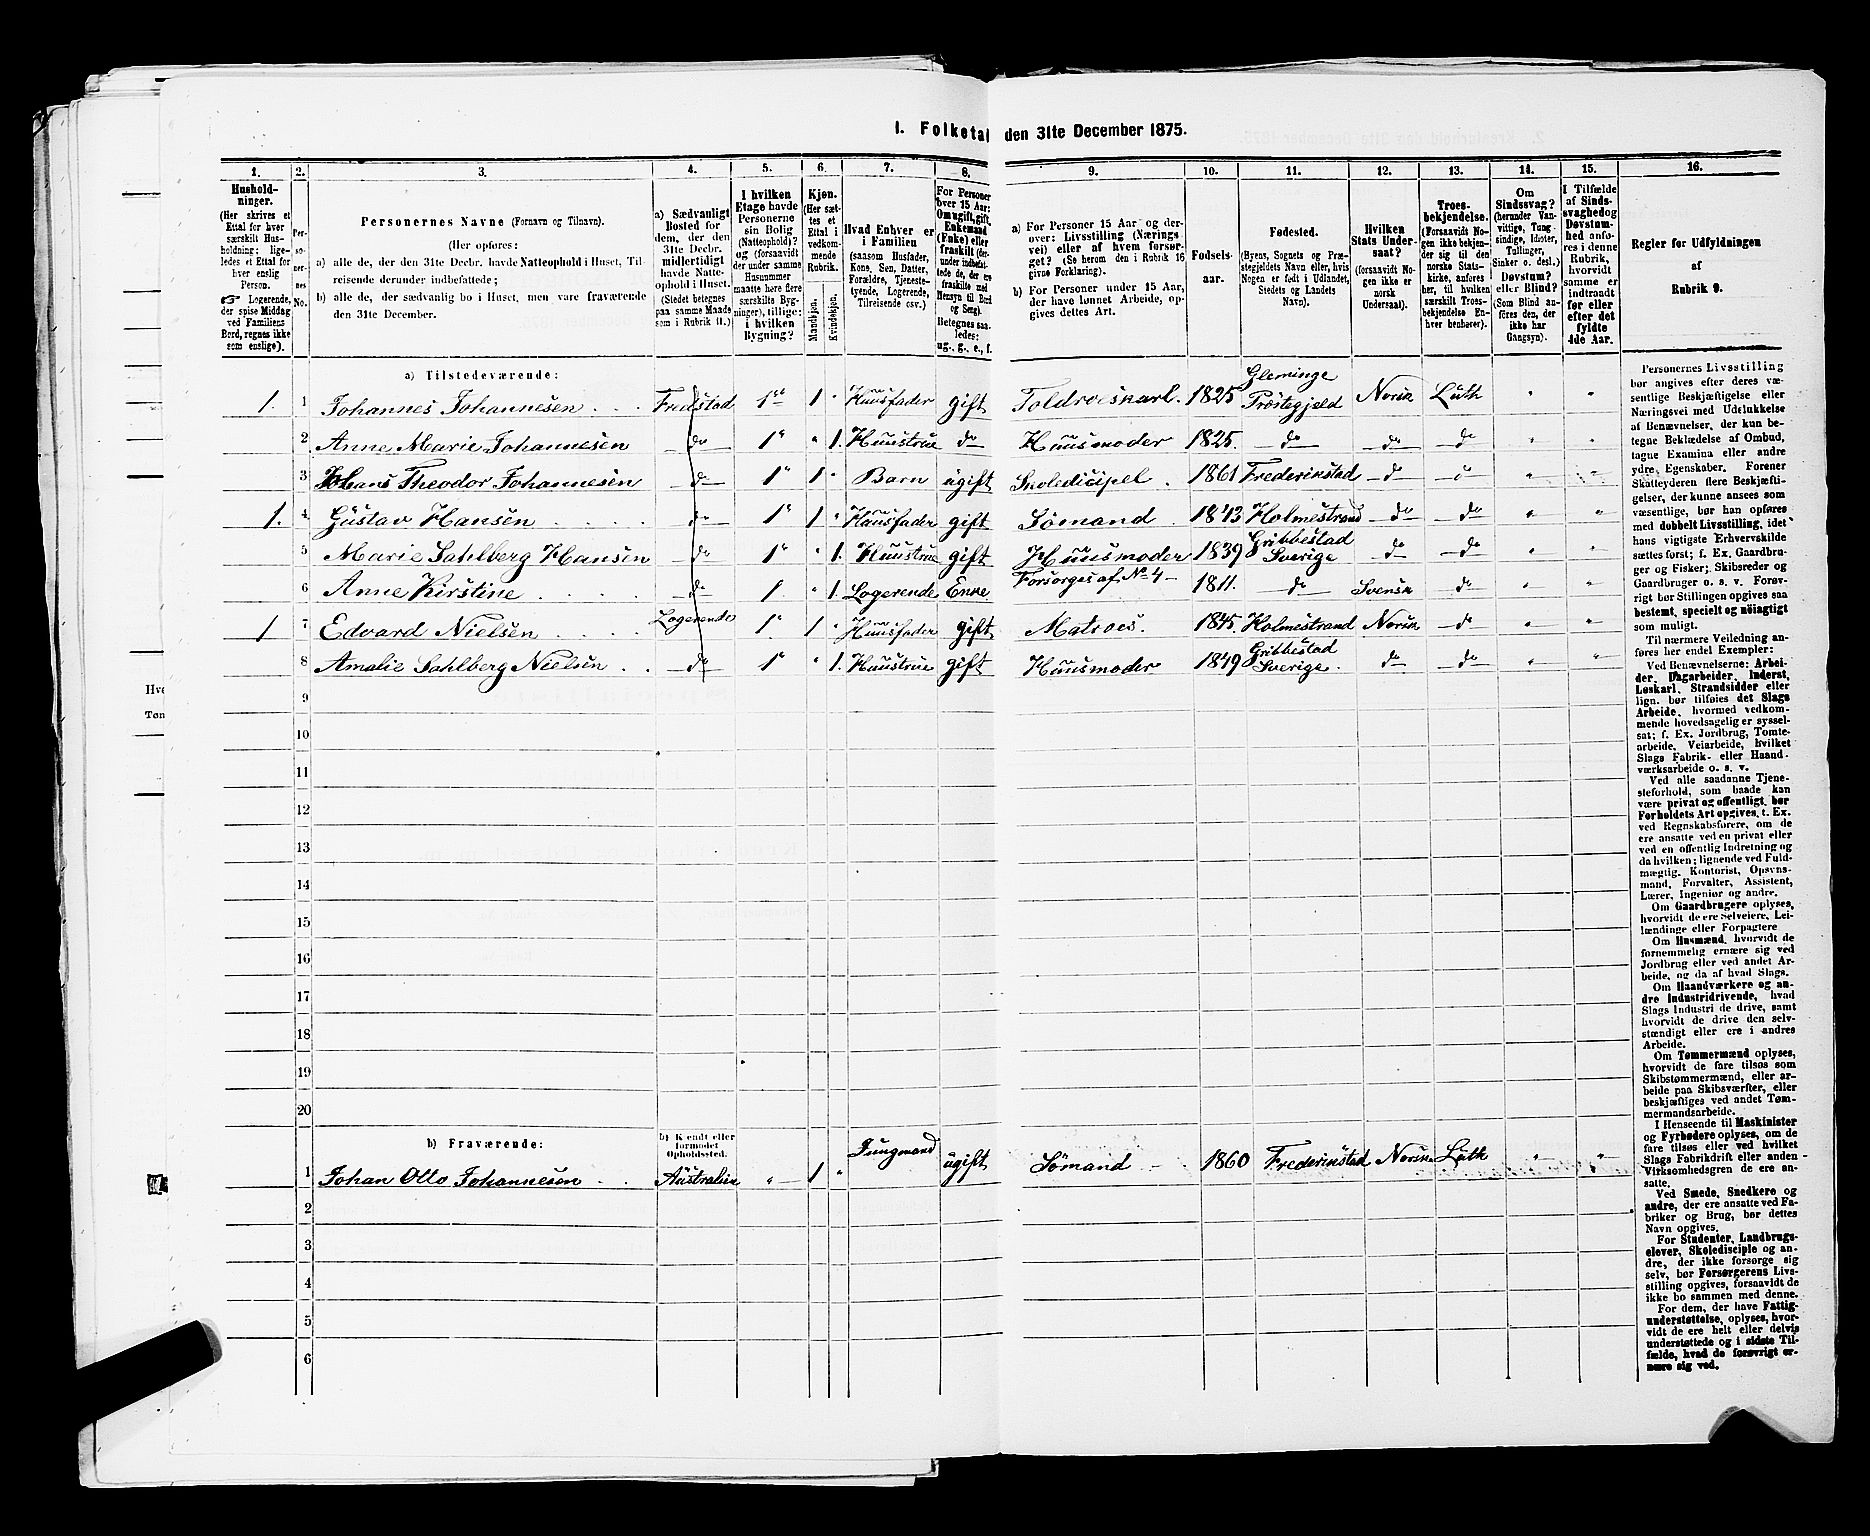 I. Folketal den 31te December 1875.
1. 2. 3. 4. 5. 6. 7. 8. 9. 10. 11. 12. 13. 14. 15. 16.
Husholdninger.
(Her skrives et
Ettal for hver
særskilt Husholdning;
ligeledes et Ettal for
hver enslig
Person.
☞ Logerende,
der spise Middag
ved Familiens
Bord, regnes ikke
som enslige).
Personernes No.
Personernes Navne (Fornavn og Tilnavn).
(Her opføres:
a) alle de, der den 31te Decbr. havde Natteophold i Huset, Tilreisende derunder indbefattede;
b) alle de, der sædvanlig bo i Huset, men vare fraværende den 31te December.
a) Sædvanligt
Bosted for
dem, der den
31te Decbr.
midlertidigt
havde Natteophold
i Huset.
(Stedet betegnes
paa samme Maade
som i Rubrik 11.)
I hvilken
Etage havde
Personerne
sin Bolig
(Natteophold)?
og (forsaavidt
der under samme
Husnummer
maatte høre flere
særskilte Bygninger),
tillige:
i hvilken
Bygning?
Kjøn.
(Her sættes
et
Ettal i
vedkommende
Rubrik.
Mandkjøn. Kvindekjøn.
Hvad Enhver er
i Familien
(saasom Husfader,
Kone, Søn, Datter,
Forældre, Tjenestetyende,
Logerende,
Tilreisende osv.)
For Personer
over 15 Aar:
Om ugift, gift,
Enkemand
(Enke) eller
fraskilt
Betegnes saaledes:
ug., g., e., f.
a) For Personer 15 Aar og derover: Livsstilling (Næringsvei) eller af hvem forsørget? (Se herom den i Rubrik 16 givne Forklaring).
b) For Personer under 15 Aar, der have lønnet Arbeide, opgives dettes Art.
Fødselsaar.
Fødested.
(Byens, Sognets og Præstegjeldets
Navn eller, hvis
Nogen er født i Udlandet,
Stedets og Landets
Navn).
Hvilken
Stats Undersaat?
(forsaavidt Nogen
ikke er
norsk
Undersaat).
Troesbekjendelse.
(Forsaavidt Nogen
ikke bekjender
sig til den
norske Statskirke,
anføres
her, til hvilken
særskilt Troesbekjendelse
Enhver
henhører).
Om
Sindssvag?
(herunder Vanvittige,
Tungsindige,
Idioter,
Tullinger,
Sinker o. desl.)
Døvstum?
eller Blind?
(Som Blind anføres
den, der
ikke har
Gangsyn).
I Tilfælde
af Sindssvaghed
og
Døvstumhed
anføres
i denne
Rubrik,
hvorvidt
samme er
indtraadt
før eller
efter det
fyldte
4de Aar.
Regler for Udfyldningen
af
Rubrik 9.
a) Tilstedeværende:
1. 1 Johannes Johannesen Fredstad 1ste 1 " Huusfader gift Toldroeskarl. 1825 Gleminge Præstegjeld Norsk Luth " "
2 Anne Marie Johannesen do 1" " 1. Huustrue do Huusmoder 1825. do do do " "
3 Hans Theodor Johannesen do 1" 1 " Barn ugift Skoledicipel. 1861 Frederikstad do d " "
1. 4 Gustav Hansen do 1" 1 " Huusfader gift Sømand 1843 Holmestrand do do " "
5 Marie Sahlberg Hansen do 1" " 1. Huustrue gift Huusmoder 1839 Gribbestad Sverige do do " "
6 Anne Kirstine do 1 " 1. Logerende Enke Forsorges af No 4 1811. do Svensk do " "
1 7 Edvard Nielsen Logerende 1" 1 " Huusfader gift Matroes. 1845. Holmestrand Norsk do " "
8 Amalie Sahlberg Nielsen do 1" " 1. Huustrue gift Huusmoder 1849 Gribbestad Sverige. do do " "
9
10
11
12
13
14
15
16
17
18
19
20
b) Fraværende: b) Kjendt eller formodet Opholdssted.
1 Johan Otto Johannesen Australien " 1 " Jungmand ugift Sømand 1860 Frederikstad Norsk Luth " "
2
3
4
5
6
Personernes Livsstilling
bør angives efter deres væsentlige
Beskjæftigelse eller
Næringsvei med Udelukkelse
af Benævnelser, der kun betegne
Beklædelse af Ombud,
tagne Examina eller andre
ydre Egenskaber. Forener
Skatteyderen flere Beskjæftigelser,
der kunne ansees som
væsentlige, bør han opføres
med dobbelt Livsstilling, idet
hans vigtigste Erhvervskilde
sættes først; f. Ex. Gaardbruger
og Fisker; Skibsreder og
Gaardbruger o. s. v. Forøvrigt
bør Stillingen opgives saa
bestemt, specielt og nøiagtigt
som muligt.
Til nærmere Veiledning anføres
her endel Exempler:
Ved Benævnelserne: Arbeider,
Dagarbeider, Inderst,
Løskarl, Strandsidder eller
lign. bør tilføies det Slags
Arbeide, hvormed vedkommende
hovedsagelig er sysselsat;
f. Ex. Jordbrug, Tomtearbeide,
Veiarbeide, hvilket
Slags Fabrik- eller Haandværksarbeide
o. s. v.
Ved alle saadanne Tjenesteforhold,
som baade kan
være privat og offentligt, bør
Forholdets Art opgives, t. Ex.
ved Regnskabsførere, om de
ere ansatte ved en privat eller
ved en offentlig Indretning og
da hvilken; lignende ved Fuldmægtig,
Kontorist, Opsynsmand,
Forvalter, Assistent,
Lærer, Ingeniør og andre.
Om Gaardbrugere oplyses,
hvorvidt de ere Selveiere, Leilændinge
eller Forpagtere
Om Husmænd, hvorvidt de
fornemmelig ernære sig ved
Jordbrug eller ved andet Arbeide,
og da af hvad Slags.
Om Haandværkere og andre
Industridrivende, hvad
Slags Industri de drive, samt
hvorvidt de drive den selvstændigt
eller ere i andres
Arbeide.
Om Tømmermænd oplyses,
hvorvidt de fare tilsøs som
Skibstømmermænd, eller arbeide
paa Skibsværfter, eller
beskjæftiges ved andet Tømmermandsarbeide.
I Henseende til Maskinister
og Fyrbødere oplyses, om de
fare tilsøs eller ved hvilket
Slags Fabrikdrift eller anden
Virksomhedsgren de ere ansatte.
Ved Smede, Snedkere og
andre, der ere ansatte ved Fabriker
og Brug, bør dettes
Navn opgives.
For Studenter, Landbrugselever,
Skoledisciple og andre,
der ikke forsørge sig
selv, bør Forsørgerens Livsstilling
opgives, forsaavidt de
ikke bo sammen med denne.
For dem, der have Fattigunderstøttelse,
oplyses, hvorvidt
de ere helt eller delvis
understøttede og i sidste Tilfælde,
hvad de forøvrigt ernære
sig ved.